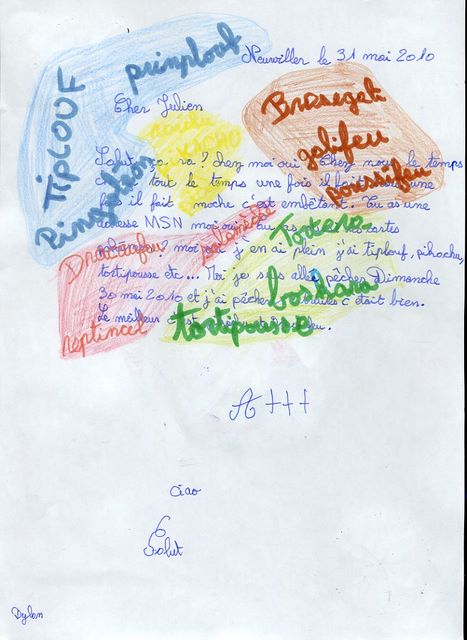 Neuwiller le 31 mai 2010
prinplouf
TIPLOUF
Brasegali
Cher Julien
raichu
galifeu
Salut ça va ? Chez moi oui. Chez nous le temps
tout le temps une fois il fait une
fois il fait moche c'est embêtant. Tu as une
adresse MSN moi oui cartes
moi j'en ai plein j'ai tiplouf, pikachu,
tortipousse etc... Moi je suis allé pêcher Dimanche
30 mai 2010 et j'ai pêcher truites c'était bien.
Le meilleur c'est
Dracaufeu
Torterra
boskara
reptincel
tortipousse
A +++
Ciao
Salut
Dylan